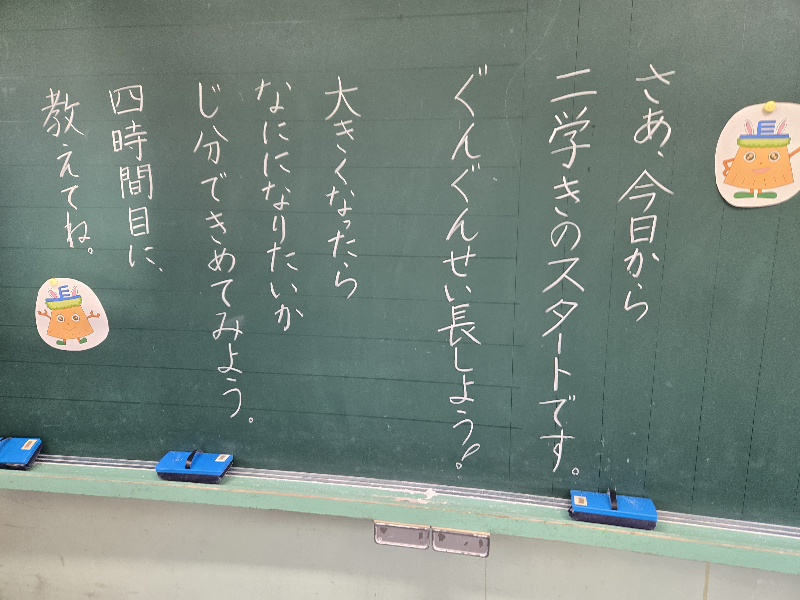 さあ、今日から
二学きのスタートです。
ぐんぐんせい長しよう!
大きくなったら
なにになりたいか
じ分できめてみよう。
四時間目に、
教えてね。